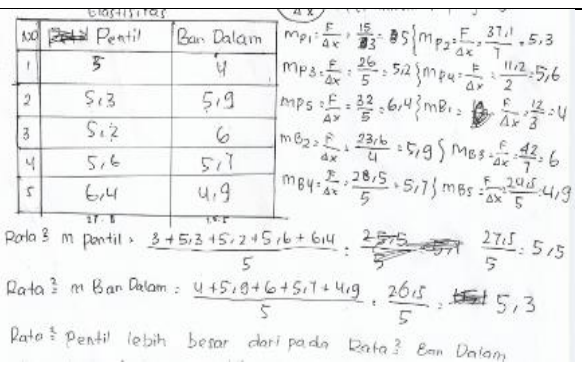 Elastisitas
No Pentil Ban Dalam
1 5 4
2 5,3 5,9
3 5,2 6
4 5,6 5,7
5 6,4 4,9
27.5
mP1 = F/Δx = 15/3 = 5 } mP2 = F/Δx = 37,1/7 = 5,3
mP3 = F/Δx = 26/5 = 5,2 } mP4 = F/Δx = 11,2/2 = 5,6
mP5 = F/Δx = 32/5 = 6,4 } mB1 = F/Δx = 12/3 = 4
mB2 = F/Δx = 23,6/4 = 5,9 } mB3 = F/Δx = 42/7 = 6
mB4 = F/Δx = 28,5/5 = 5,7 } mB5 = F/Δx = 24,5/5 = 4,9
Rata² m pentil = 3+5,3+5,2+5,6+6,4/5 = 27,5/5 = 5,5
Rata² m Ban Dalam = 4+5,9+6+5,7+4,9/5 = 26,5/5 = 5,3
Rata² Pentil lebih besar dari pada Rata² Ban Dalam